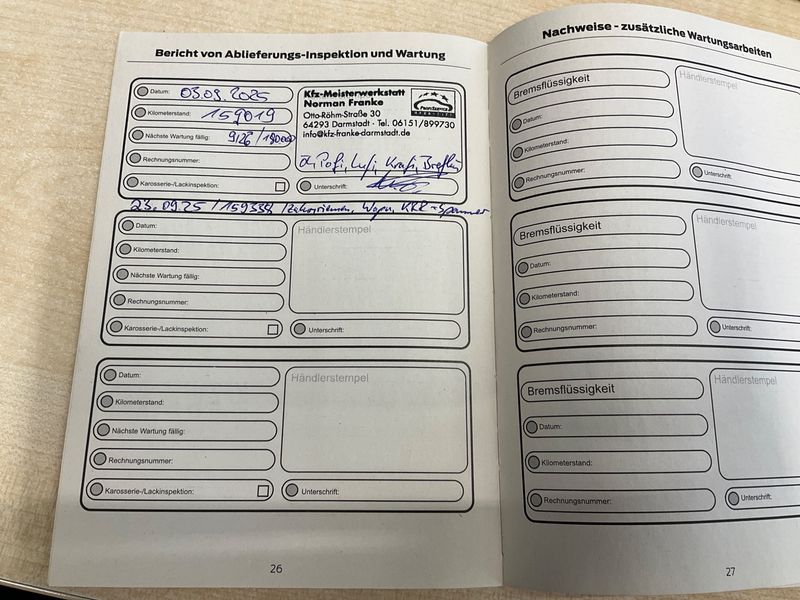 Bericht von Ablieferungs-Inspektion und Wartung
Datum: 03.09.2025
Kilometerstand: 159019
Nächste Wartung fällig: 9/26 / 190000
Rechnungsnummer:
Karosserie-/Lackinspektion:
Kfz-Meisterwerkstatt
Norman Franke
Otto-Röhm-Straße 30
64293 Darmstadt · Tel. 06151/899730
info@kfz-franke-darmstadt.de
Unterschrift:
23.09.25 / 159338 / Zahnriemen, Wapu,
Datum:
Kilometerstand:
Nächste Wartung fällig:
Rechnungsnummer:
Karosserie-/Lackinspektion:
Händlerstempel
Unterschrift:
Datum:
Kilometerstand:
Nächste Wartung fällig:
Rechnungsnummer:
Karosserie-/Lackinspektion:
Händlerstempel
Unterschrift:
26
Nachweise - zusätzliche Wartungsarbeiten
Bremsflüssigkeit
Datum:
Kilometerstand:
Rechnungsnummer:
Händlerstempel
Unterschrift:
Bremsflüssigkeit
Datum:
Kilometerstand:
Rechnungsnummer:
Händlerstempel
Unterschrift:
Bremsflüssigkeit
Datum:
Kilometerstand:
Rechnungsnummer:
Händlerstempel
Unterschrift:
27